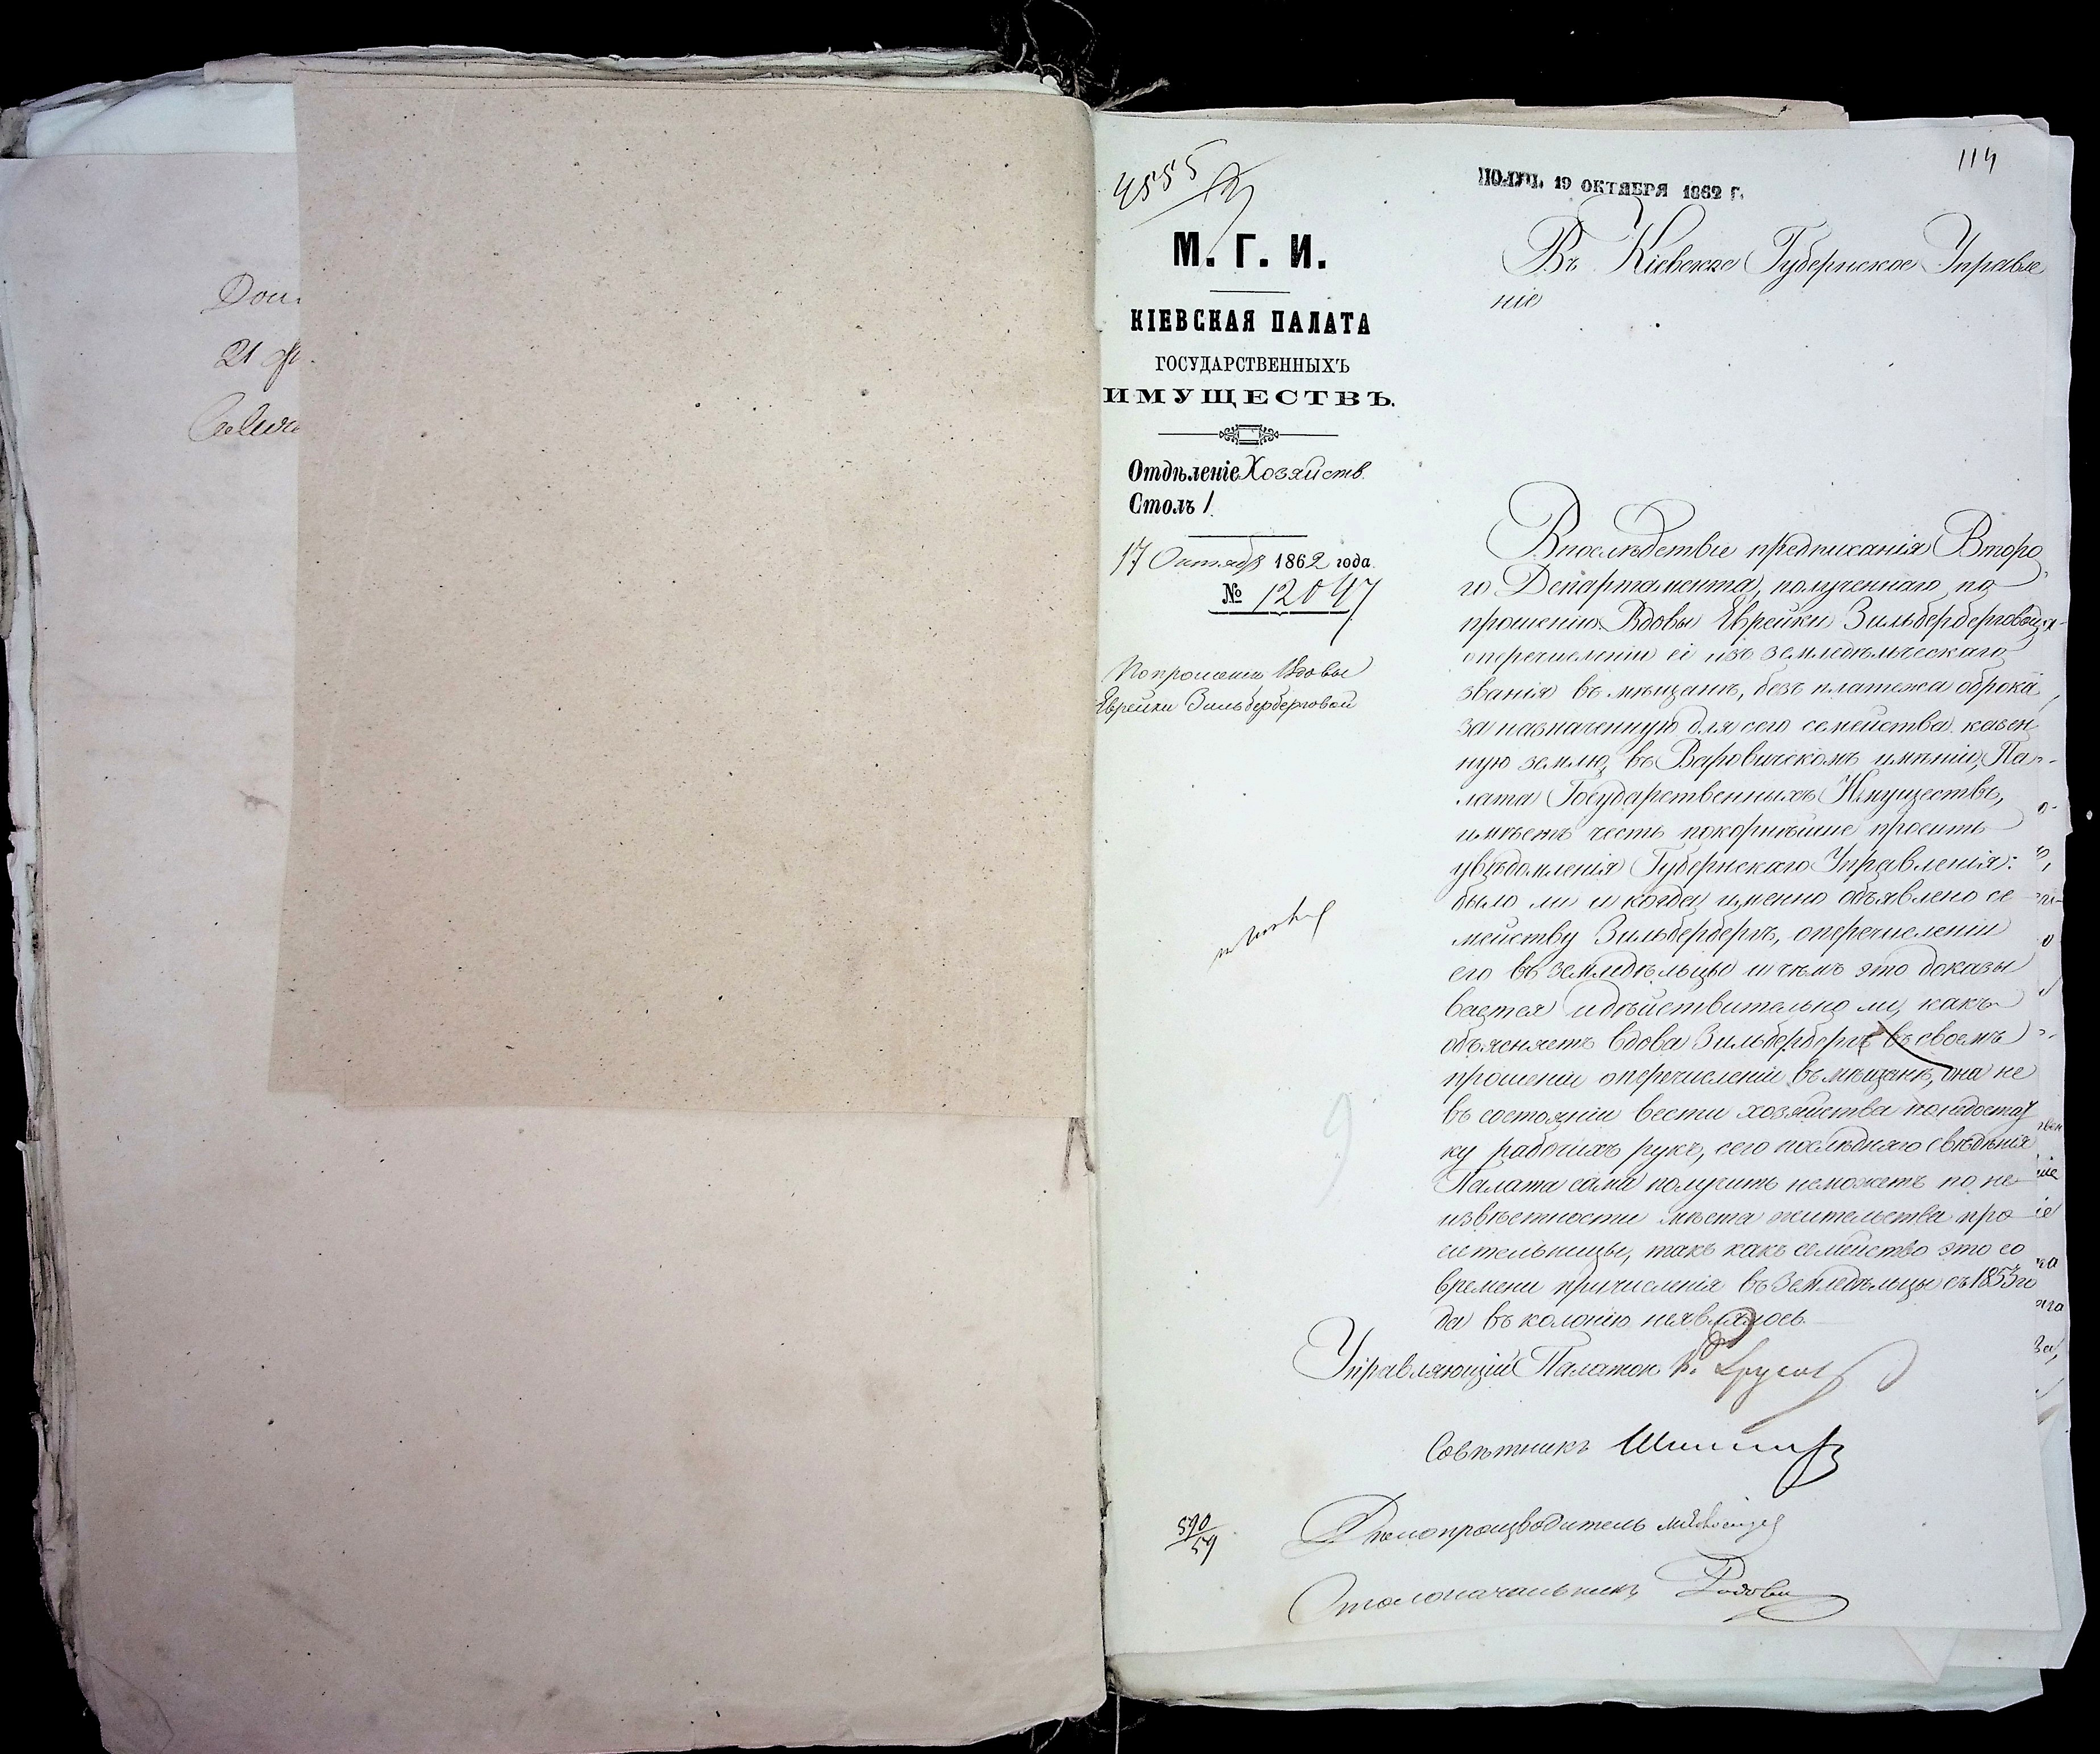 21
114
4555
ПОЛУЧ. 19 ОКТЯБРЯ 1862 Г.
М. Г. И.
КІЕВСКАЯ ПАЛАТА
ГОСУДАРСТВЕННЫХЪ
ИМУЩЕСТВЪ.
Отдѣленіе Хозяйств.
Столъ 1
17 Октября 1862 года.
№ 12047
По прошенію Вдовы
Еврейки Зильберберговой
590
59
Въ Кіевское Губернское Управле
ніе
Впослѣдствіе предписанія Второ
го Департамента, полученнаго по
прошенію Вдовы Еврейки Зильберберговой,
оперечисленіи её изъ земледѣльческаго
званія въ мѣщане, безъ платежа оброка
за назначенную для сего семейства казен
ную землю, въ Варовичскомъ имѣніи, Па-
лата Государственныхъ Имуществъ,
имѣетъ честь покорнѣйше просить
увѣдомленія Губернскаго Управленія:
было ли и когда именно объявлено се
мейству Зильбербергъ, оперечисленіи
его въ земледѣльцы и чѣмъ это доказы
вается и дѣйствительно ли, какъ
объясняетъ вдова Зильбербергъ въ своемъ
прошеніи оперечисленіи въ мѣщане, она не
въ состояніи вести хозяйства по недостат
ку рабочихъ рукъ, сего послѣдняго свѣдѣнія
Палата сама получить неможетъ по не
извѣстности мѣста жительства про
сительницы, такъ какъ семейство это со
времени причисленія въ Земледѣльцы съ 1853 го
да въ колонію неявлялось.
Управляющій Палатою
Совѣтникъ
Дѣлопроизводитель
Столоначальникъ